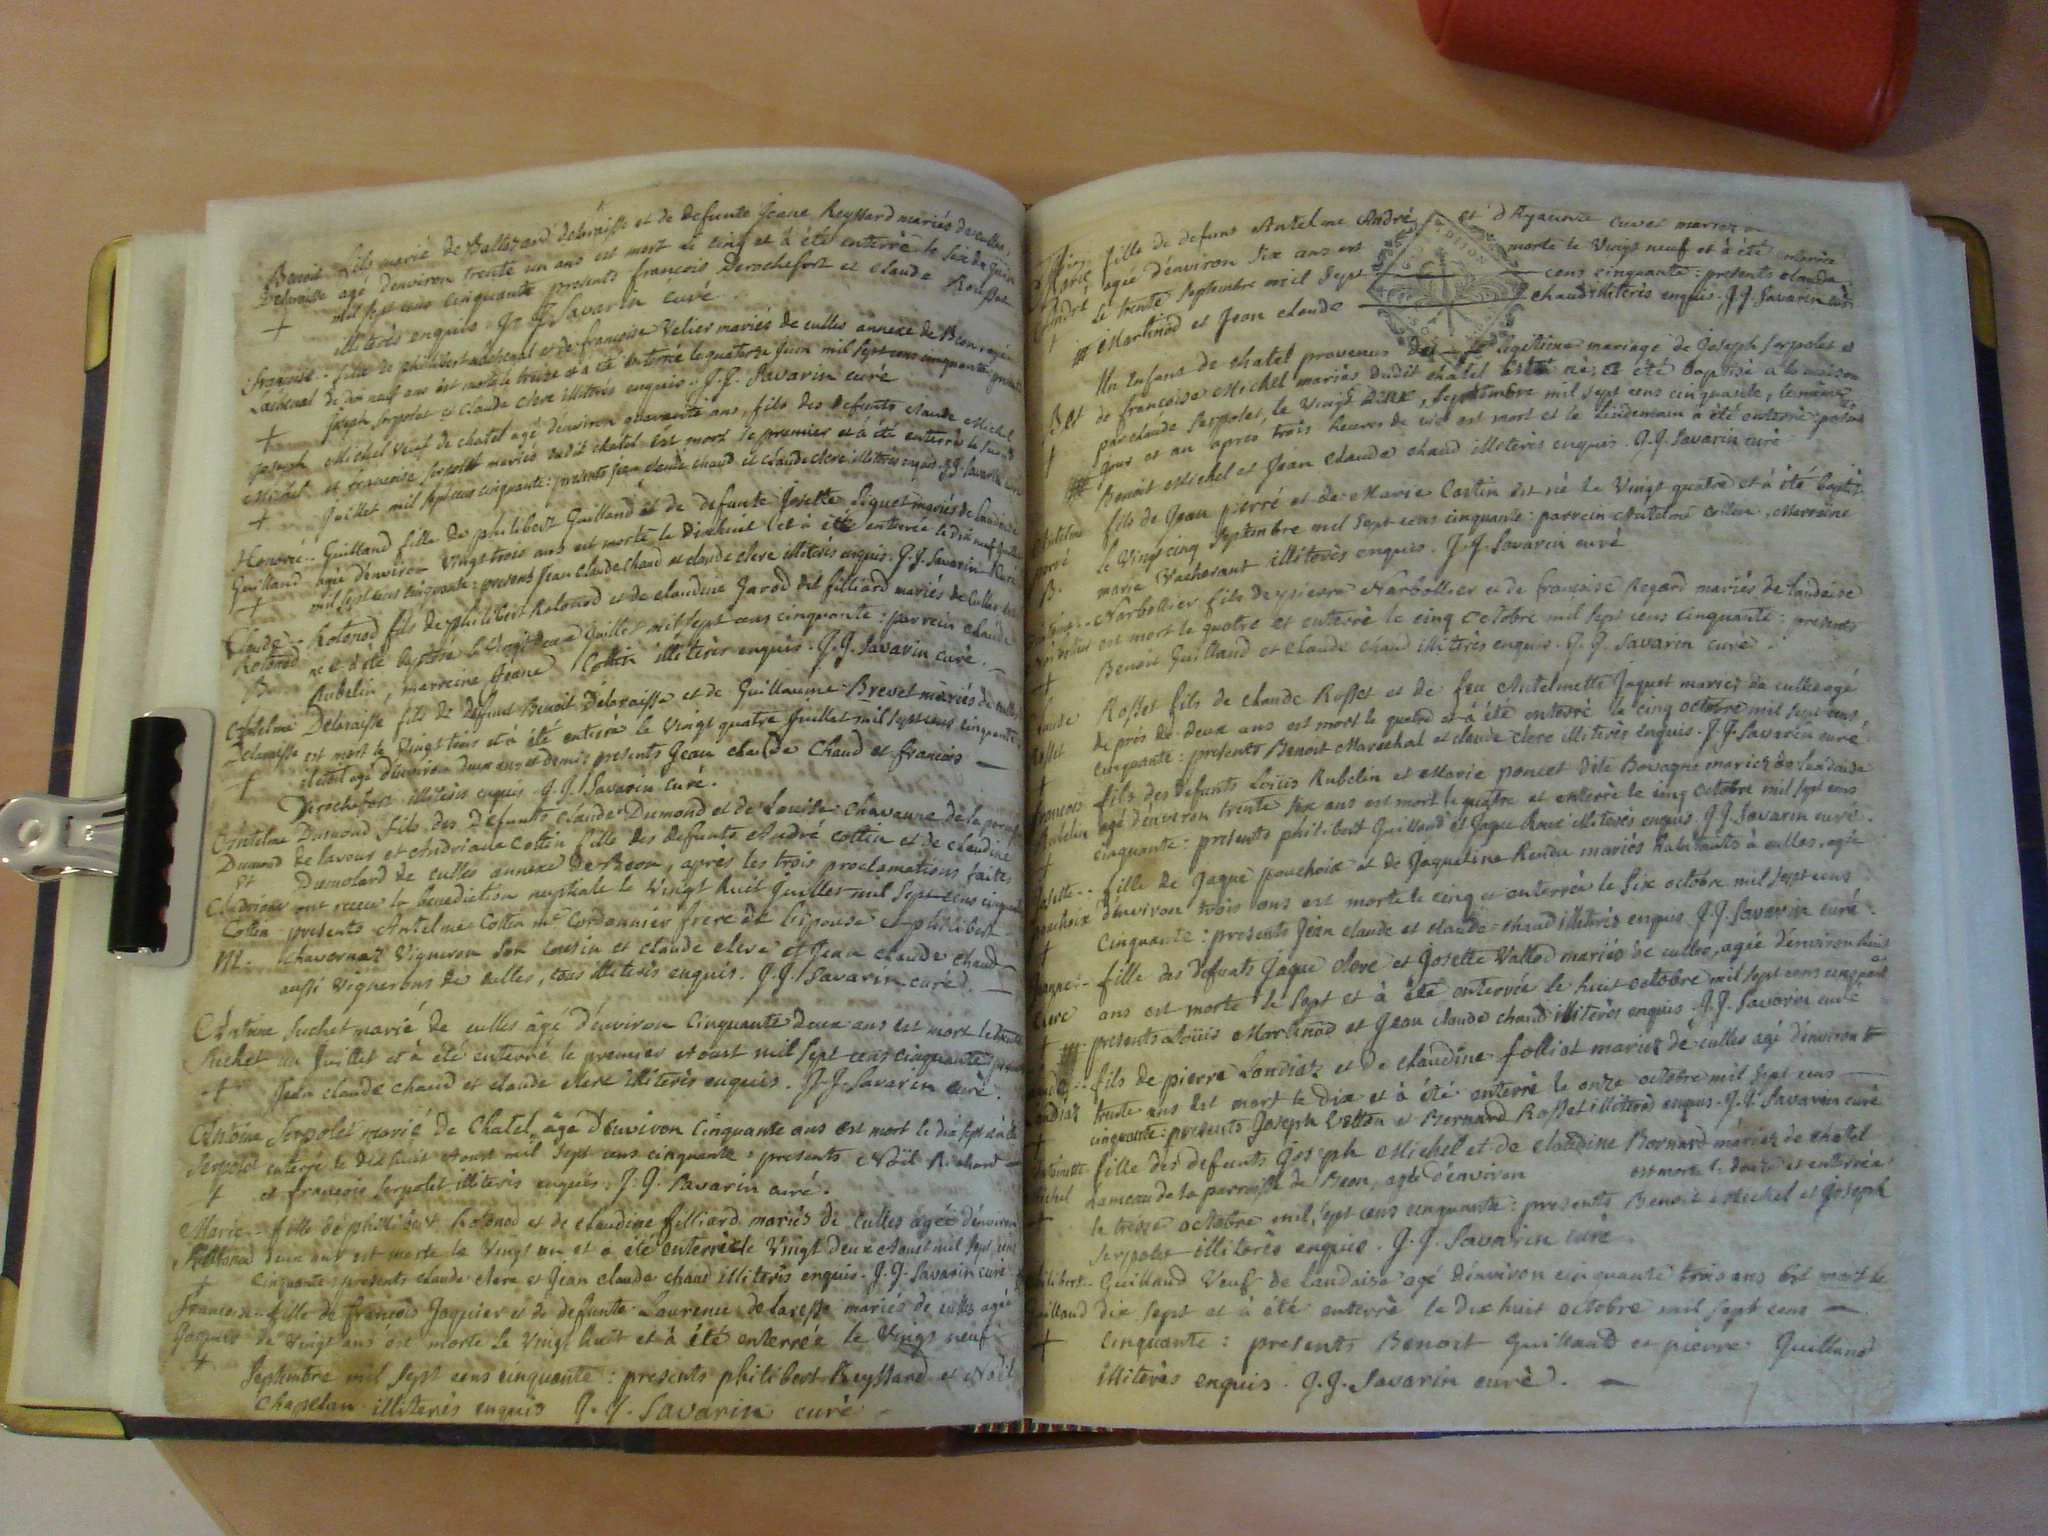 Benoit fils marié de Baltezard delaraisse et de defunte Jeane Reyssard mariés de culles,
Delaraisse agé d'environ trente un ans est mort le cinq et à été enterré le six de Juin
+ mil sept cens cinquante presents francois Derochefort et claude Rosset
illiterés enquis. J. J. Savarin curé
francoise fille de philibert Lachenal et de francoise Velier mariés de culles annexe de Beon, agée
Lachenal de dix neuf ans est morte le treize et a été enterrée le quatorze Juin mil sept cens cinquante presents
+ Joseph Serpolet et claude clere illiterés enquis. J. J. Savarin curé
Joseph Michel veuf de chatel agé d'environ quarante ans, fils des defunts claude Michel
Michel et francoise Serpolet mariés dudit chatel est mort le premier et à été enterré le second
+ Juillet mil sept cens cinquante: presents Jean claude chaud et claude clere illiterés enquis. J. J. Savarin curé
Honoré.. Guilland fille de philibert Guilland et de defunte Josette Siquet mariés de Landaise
Guilland agée d'environ vingt trois ans est morte le dixhuit et à été enterrée le dix neuf Juillet
+ mil sept cens cinquante: presents Jean claude chaud et claude clere illiterés enquis. J. J. Savarin curé
Claude - Rolonod fils de philibert Rolonod et de claudine Jarod dit filliard mariés de culles est
Rolonod né et à été baptisé le vingt deux Juillet mil sept cens cinquante: parrein claude
B Rubelin, marreine Jeane Cottin illiterés enquis. J. J. Savarin curé.
Antelme Delaraisse fils de defunt Benoit Delaraisse et de Guillaume Brevet mariés de culles
Delaraisse est mort le vingt trois et à été enterré le vingt quatre Juillet mil sept cens cinquante
+ il etoit agé d'environ deux ans et demi: presents Jean claude Chaud et francois
Derochefort illiterés enquis. J. J. Savarin curé.
Antelme Dumond fils des defunts claude Dumond et de Louise Chavanne de la paroisse
Dumond de lavour et Andriane Cottin fille des defunts André cottin et de claudine
et Dumolard de culles annexe de Beon, après les trois proclamations faites
Andriane ont receu la benediction nuptiale le vingt huit Juillet mil sept cens cinquante
Cottin presents Antelme Cottin me Cordonnier frere de l'epouse et philibert
M. chavernaz Vigneron son cousin et claude clere et Jean claude chaud
aussi vignerons de culles, tous illiterés enquis. J. J. Savarin curé.
Antoine Suchet marié de culles âgé d'environ cinquante deux ans est mort le trente
Suchet un Juillet et à été enterré le premier Aoust mil sept cens cinquante presents
+ Jean claude chaud et claude clere illiterés enquis. J. J. Savarin curé.
Antoine Serpolet marié de Chatel, âgé d'environ cinquante ans est mort le dix sept et à été
Serpolet enterré le dixhuit Aoust mil sept cens cinquante: presents Noël Richard
+ et francois Serpolet illiterés enquis. J. J. Savarin curé.
Marie - fille de philibert Rolonod et de claudine filliard mariés de culles agée d'environ
Rolonod deux ans est morte le vingt un et à été enterrée le vingt deux Aoust mil sept cens
+ cinquante presents claude clere et Jean claude chaud illiterés enquis. J. J. Savarin curé
Francoise - fille de francois Jaquier et de defunte Laurence delaresse mariés de culles agée
Jaquier de vingt ans est morte le vingt huit et à été enterrée le vingt neuf
+ Septembre mil sept cens cinquante: presents philibert Reyssard et Noël
Chapelan illiterés enquis J. J. Savarin curé
fille de defuns Antelme André et d'Hyacinte cuvet mariez
agée d'environ six ans est morte le vingt neuf et à été enterrée
André le trente septembre mil sept cens cinquante: presents claude
+ Martinod et Jean claude chaud illiterés enquis. J. J. Savarin curé
DIJON
Un Enfant de chatel provenus du legitime mariage de Joseph Serpolet et
B et de francoise Michel mariés dudit chatel est né, et été baptisé à la maison
+ par claude Serpolet, le vingt deux septembre mil sept cens cinquante, le même
jour et an après trois heures de vie est mort et le lendemain à été enterré: presents
Benoit Michel et Jean claude chaud illiterés enquis. J. J. Savarin curé
Antelme fils de Jean pierre et de Marie Cottin est né le vingt quatre et à été baptisé
le vingt cinq septembre mil sept cens cinquante: parrein Antelme cottin, Marreine
B. marie Vacherant illiterés enquis. J. J. Savarin curé
Narbollier fils de pierre Narbollier et de francoise Regard mariés de landaise
est mort le quatre et enterré le cinq octobre mil sept cens cinquante: presents
+ Benoit Guilland et claude chaud illiterés enquis. J. J. Savarin curé.
Claude Rosset fils de claude Rosset et de feu Antelmette Jaquet mariez de culles agé
Rosset de près de deux ans est mort le quatre et à été enterré le cinq octobre mil sept cens
+ cinquante: presents Benoit Marechal et claude clere illiterés enquis. J. J. Savarin curé
francois fils des defunts Loüis Rubelin et Marie poncet dite Bovagne mariez de landaise
Rubelin agé d'environ trente six ans est mort le quatre et enterré le cinq octobre mil sept cens
+ cinquante: presents philibert Guilland et Jaque Roux illiterés enquis. J. J. Savarin curé.
Josette - fille de Jaque pouchoix et de Jaqueline Rendu mariés habitants à culles, agée
pouchoix d'environ trois ans est morte le cinq et enterrée le six octobre mil sept cens
+ cinquante: presents Jean claude et claude chaud illiterés enquis. J. J. Savarin curé.
fille des defunts Jaque clere et Josette Vallod mariés de culles, agée d'environ huit
clere ans est morte le sept et à été enterrée le huit octobre mil sept cens cinquante
+ presents Loüis Martinod et Jean claude chaud illiterés enquis. J. J. Savarin curé
fils de pierre Landiaz et de claudine folliat mariez de culles agé d'environ
Landiaz trente ans est mort le dix et à été enterré le onze octobre mil sept cens
+ cinquante: presents Joseph Vetton et Bernard Rosset illiterés enquis. J. J. Savarin curé
Antoinette fille des defunts Joseph Michel et de claudine Bornard mariez de chatel
Michel hameau de la parroisse de Beon, agée d'environ est morte le douze et enterrée
+ le treize octobre mil sept cens cinquante: presents Benoit Michel et Joseph
Serpolet illiterés enquis. J. J. Savarin curé.
philibert - Guilland veuf de landaise agé d'environ cinquante trois ans est mort le
Guilland dix sept et à été enterré le dixhuit octobre mil sept cens
+ cinquante: presents Benoit Guilland et pierre Guilland
illiterés enquis. J. J. Savarin curé.